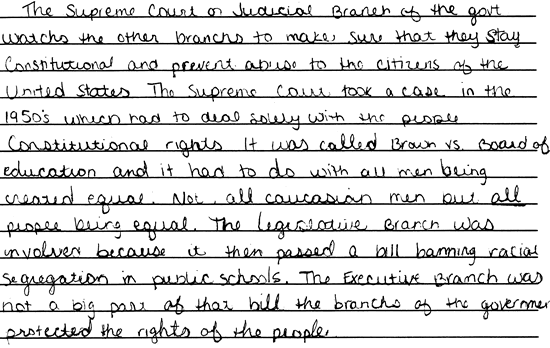 The Supreme Court or Judicial Branch of the govt
watchs the other branchs to make sure that they stay
Constitutional and prevent abuse to the citizens of the
United States The Supreme Court took a case in the
1950's which had to deal solely with the people
Constitutional rights It was called Brown vs. Board of
education and it had to do with all men being
created equal. Not all caucasian men but all
people being equal. The legislative Branch was
involver because it then passed a bill banning racial
segregation in public schools. The Executive Branch was
not a big part of that bill the branchs of the governmen
protected the rights of the people.